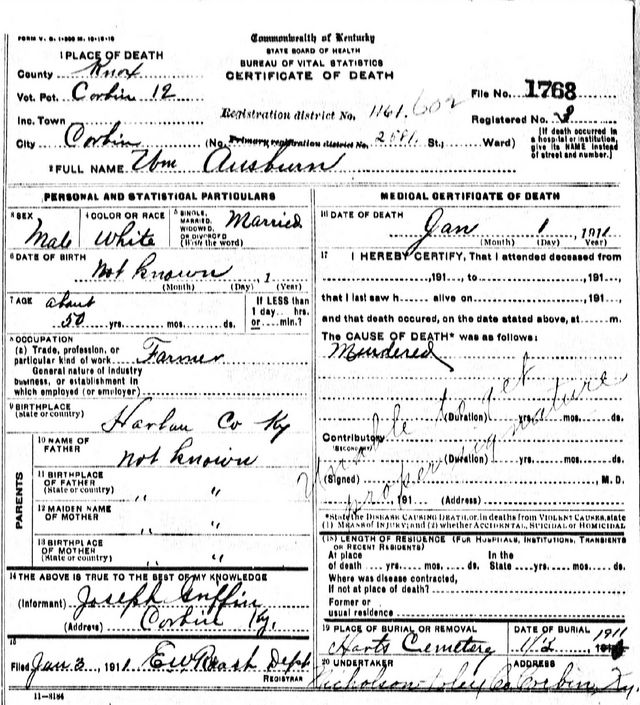 FORM V. S. 1-200 M. 10-12-10
Commonwealth of Kentucky
STATE BOARD OF HEALTH
BUREAU OF VITAL STATISTICS
CERTIFICATE OF DEATH
1 PLACE OF DEATH
County Knox
Vot. Pct. Corbin 12
Inc. Town
City Corbin
Registration district No. 1161 602
(No. Primary registration district No. 2581 St.; Ward)
File No. 1768
Registered No. 3
[If death occurred in a hospital or institution, give its NAME instead of street and number.]
2 FULL NAME Wm Ausburn
PERSONAL AND STATISTICAL PARTICULARS
3 SEX Male
4 COLOR OR RACE White
5 SINGLE, MARRIED, WIDOWED, OR DIVORCED (Write the word) Married
6 DATE OF BIRTH Not known, 1
(Month) (Day) (Year)
7 AGE about 50 yrs. mos. ds.
If LESS than 1 day hrs. or min.?
8 OCCUPATION
(a) Trade, profession, or particular kind of work Farmer
General nature of industry business, or establishment in which employed (or employer)
9 BIRTHPLACE (State or country) Harlan Co Ky
PARENTS
10 NAME OF FATHER Not Known
11 BIRTHPLACE OF FATHER (State or country) " "
12 MAIDEN NAME OF MOTHER " "
13 BIRTHPLACE OF MOTHER (State or country) " "
14 THE ABOVE IS TRUE TO THE BEST OF MY KNOWLEDGE
(Informant) Joseph Griffin
(Address) Corbin Ky.
15
Filed Jan 3, 1911 Dept
REGISTRAR
11-3184
MEDICAL CERTIFICATE OF DEATH
16 DATE OF DEATH Jan 1, 1911
(Month) (Day) (Year)
17 I HEREBY CERTIFY, That I attended deceased from
, 191 , to , 191 ,
that I last saw h alive on , 191 ,
and that death occured, on the date stated above, at m.
The CAUSE OF DEATH* was as follows:
Murdered
Unable to get
proper signature
(Duration) yrs. mos. ds.
Contributory
(SECONDARY)
(Duration) yrs. mos. ds.
(Signed) , M. D.
, 191 (Address)
*State the DISEASE CAUSING DEATH, or, in deaths from VIOLENT CAUSES, state (1) MEANS of INJURY; and (2) whether ACCIDENTAL, SUICIDAL or HOMICIDAL
(18) LENGTH OF RESIDENCE (FOR HOSPITALS, INSTITUTIONS, TRANSIENTS OR RECENT RESIDENTS)
At place of death yrs. mos. ds. In the State yrs. mos. ds.
Where was disease contracted, if not at place of death?
Former or usual residence
19 PLACE OF BURIAL OR REMOVAL Harts Cemetery
DATE OF BURIAL 1/2 1911
20 UNDERTAKER
Nicholson Foley Co Corbin, Ky.